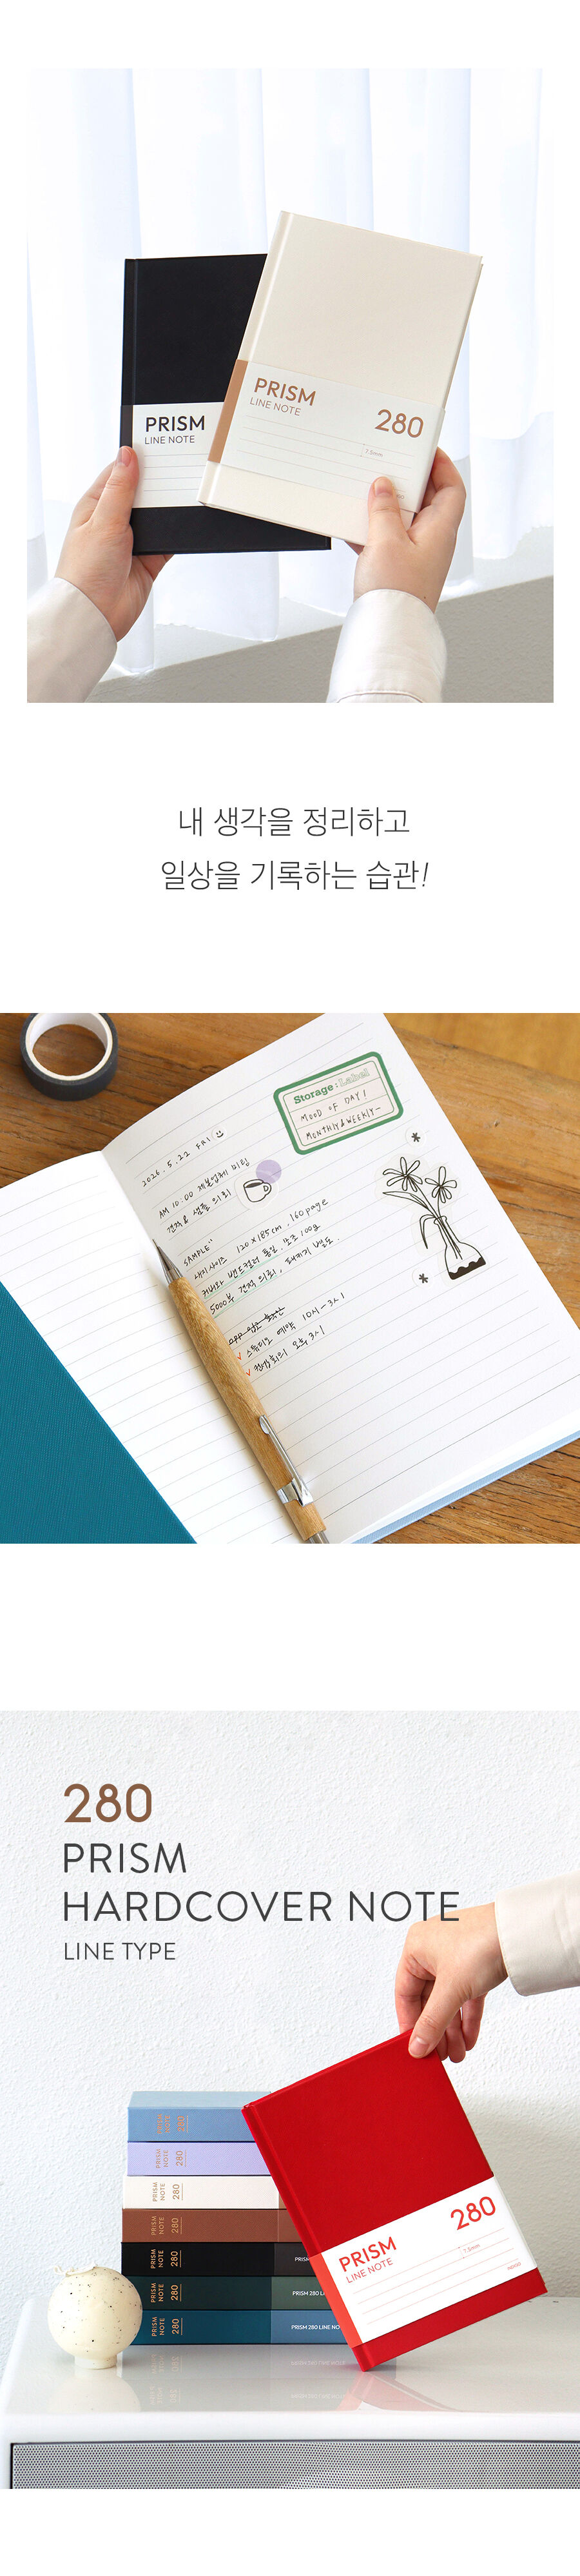 PRISM
LINE NOTE
PRISM
LINE NOTE
280
7.5mm
내 생각을 정리하고
일상을 기록하는 습관!
Storage : Label
MOOD OF DAY!
MONTHLY & WEEKLY-
2026. 5. 22 FRI
AM 10:00 제본업체 미팅
견적 & 샘플 의뢰
SAMPLE"
내지 사이즈 120 x 185cm, 160page
커버와 밴드컬러 통일. 모조 100g
5000부 견적 의뢰, 패키지 별도.
스튜디오 예약 10시-3시
컨셉회의 오후 3시
280
PRISM
HARDCOVER NOTE
LINE TYPE
PRISM
NOTE
280
PRISM
NOTE
280
PRISM
NOTE
280
PRISM
NOTE
280
PRISM
NOTE
280
PRISM
PRISM
NOTE
280
PRISM 280 LI
PRISM
NOTE
280
PRISM 280 LINE NO
PRISM
LINE NOTE
280
7.5mm